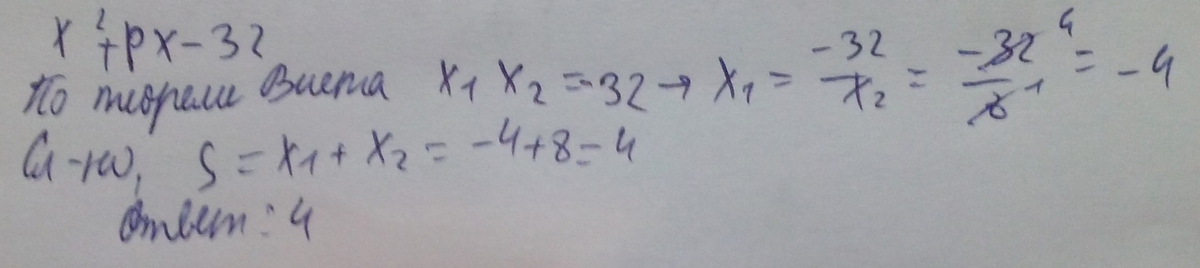 x² + px - 32
По теореме Виета x₁ x₂ = -32 → x₁ = -32/x₂ = -32/8 = -4
Сл-но, S = x₁ + x₂ = -4+8 = 4
Ответ: 4